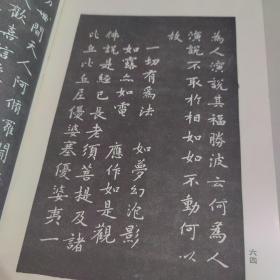 為人演說其福勝彼云何為人
演說不取於相如如不動何以
故
一切有為法 如夢幻泡影
如露亦如電 應作如是觀
佛說是經已長老須菩提及諸
比丘比丘尼優婆塞優婆夷一
間天人阿脩羅聞
歡喜信
六四